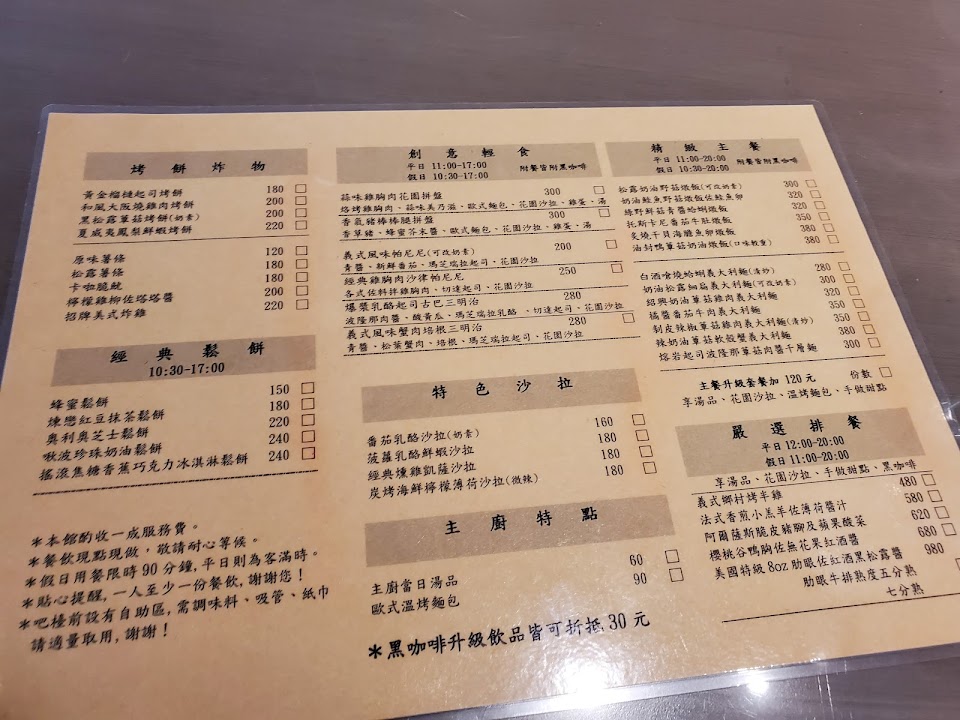 烤餅炸物
黃金榴槤起司烤餅 180
和風大阪燒雞肉烤餅 200
黑松露蕈菇烤餅(奶素) 200
夏威夷鳳梨鮮蝦烤餅 220
原味薯條 120
松露薯條 180
卡啦脆魷 180
檸檬雞柳佐塔塔醬 200
招牌美式炸雞 220
經典鬆餅
10:30-17:00
蜂蜜鬆餅 150
煉戀紅豆抹茶鬆餅 180
奧利奧芝士鬆餅 220
啾波珍珠奶油鬆餅 240
搖滾焦糖香蕉巧克力冰淇淋鬆餅 240
*本館酌收一成服務費。
*餐飲現點現做,敬請耐心等候。
*假日用餐限時90分鐘,平日則為客滿時。
*貼心提醒,一人至少一份餐飲,謝謝您!
*吧檯前設有自助區,需調味料、吸管、紙巾
請適量取用,謝謝!
創意輕食
平日 11:00-17:00 附餐皆附黑咖啡
假日 10:30-17:00
蒜味雞胸肉花園拼盤 300
烙烤雞胸肉、蒜味美乃滋、歐式麵包、花園沙拉、雞蛋、湯
香氣豬棒棒腿拼盤 300
香草豬、蜂蜜芥末醬、歐式麵包、花園沙拉、雞蛋、湯
義式風味帕尼尼(可改奶素) 200
青醬、新鮮番茄、瑪芝瑞拉起司、花園沙拉
經典雞胸肉沙律帕尼尼 250
各式佐料拌雞胸肉、切達起司、花園沙拉
爆漿乳酪起司古巴三明治 280
波隆那肉醬、酸黃瓜、瑪芝瑞拉乳酪、切達起司、花園沙拉
義式風味蟹肉培根三明治 280
青醬、松葉蟹肉、培根、瑪芝瑞拉起司、花園沙拉
特色沙拉
番茄乳酪沙拉(奶素) 160
菠蘿乳酪鮮蝦沙拉 180
經典燻雞凱薩沙拉 180
炭烤海鮮檸檬薄荷沙拉(微辣) 180
主廚特點
主廚當日湯品 60
歐式溫烤麵包 90
*黑咖啡升級飲品皆可折抵30元
精緻主餐
平日 11:00-20:00 附餐皆附黑咖啡
假日 10:30-17:00
松露奶油野菇燉飯(可改奶素) 300
奶油鮭魚野菇燉飯佐鮭魚卵 320
綠野鮮菇青醬蛤蜊燉飯 320
托斯卡尼番茄牛肚燉飯 350
炙燒干貝海膽魚卵燉飯 380
油封鴨蕈菇奶油燉飯(口味較重) 380
白酒嗆燒蛤蜊義大利麵(清炒) 280
奶油松露細扁義大利麵(可改奶素) 300
紹興奶油蕈菇雞肉義大利麵 320
橘醬番茄牛肉義大利麵 350
剝皮辣椒蕈菇雞肉義大利麵(清炒) 350
辣奶油蕈菇軟殼蟹義大利麵 380
熔岩起司波隆那蕈菇肉醬千層麵 300
主餐升級套餐加 120元 份數
享湯品、花園沙拉、溫烤麵包、手做甜點
嚴選排餐
平日 12:00-20:00
假日 11:00-20:00
享湯品、花園沙拉、手做甜點、黑咖啡
義式鄉村烤半雞 480
法式香煎小羔羊佐薄荷醬汁 580
阿爾薩斯脆皮豬腳及蘋果酸菜 620
櫻桃谷鴨胸佐無花果紅酒醬 680
美國特級8oz肋眼佐紅酒黑松露醬 980
肋眼牛排熟度五分熟
七分熟